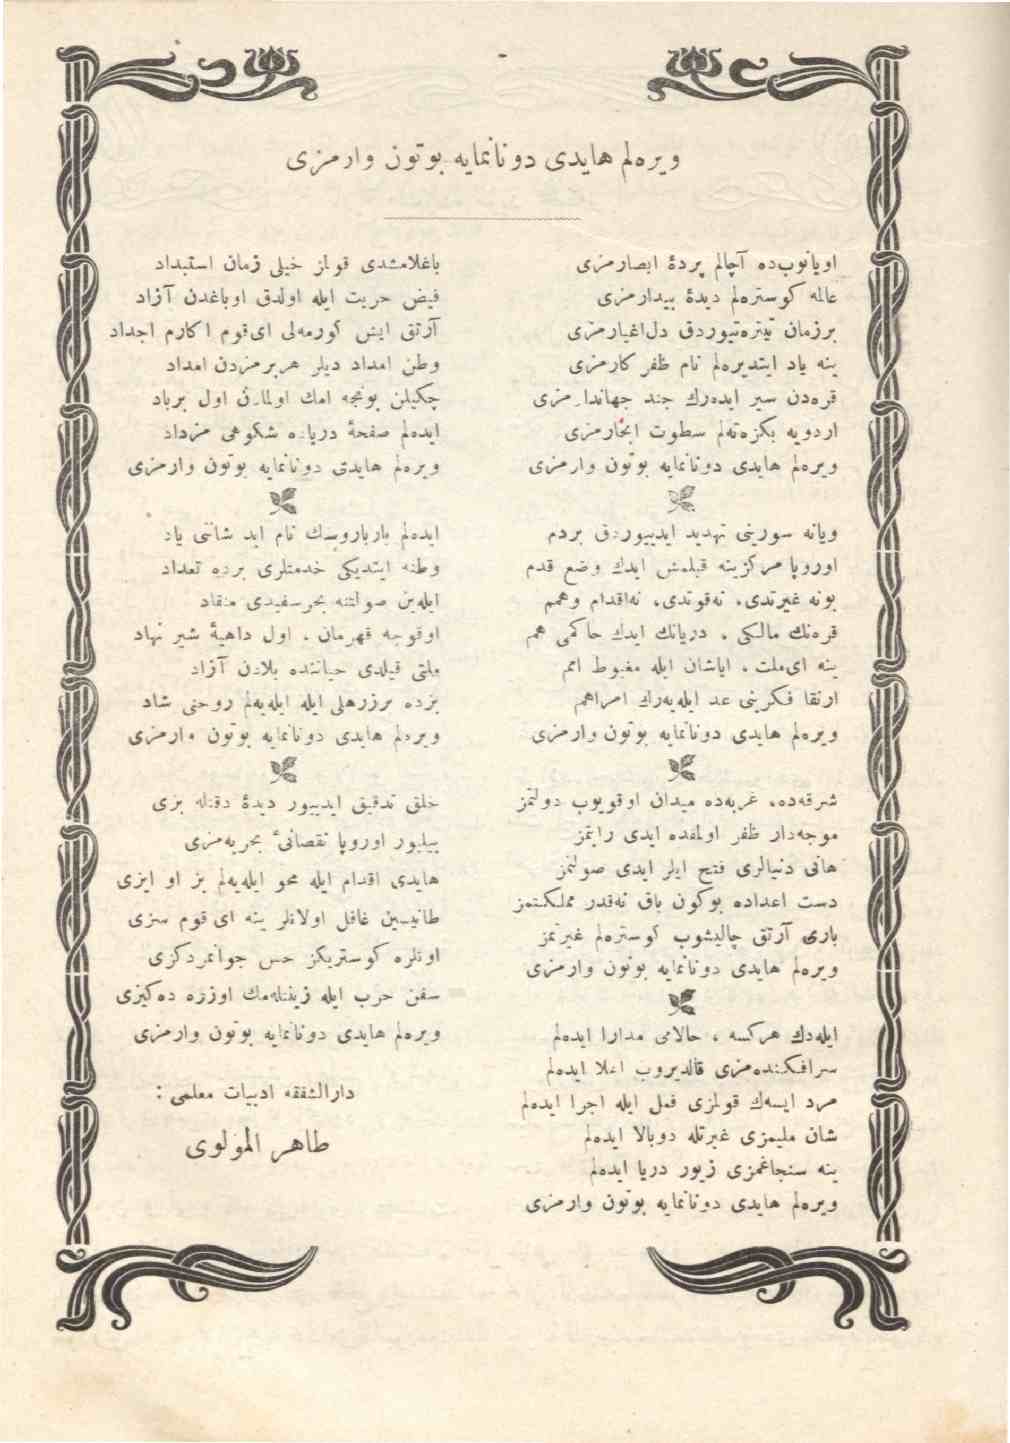 ویره‌لم هایدی دونانمایه بوتون وارمزی
اویانوب‌ده آچالم پردهٔ ابصارمزی
عالمه کوستره‌لم دیدهٔ بیدارمزی
برزمان تیتره‌تیوردق دل‌اغیارمزی
ینه یاد ایتدیره‌لم نام ظفر کارمزی
قره‌دن سیر ایده‌رك جند جهاندارمزی
اردویه بکزه‌ته‌لم سطوت ابحارمزی
ویره‌لم هایدی دونانمایه بوتون وارمزی
ویانه سورینی تهدید ایدییوردق بردم
اوروپا مرکزینه قیلمش ایدك وضع قدم
بونه غیرتدی، نه‌قوتدی، نه‌اقدام وهمم
قره‌نك مالکی ، دریانك ایدك حاکمی هم
ینه ای‌ملت ، ایاشان ایله مغبوط امم
ارتقا فکرینی عد ایله‌یه‌رك امراهم
ویره‌لم هایدی دونانمایه بوتون وارمزی
شرقه‌ده، غربه‌ده میدان اوقویوب دولتمز
موجه‌دار ظفر اولمقده ایدی رایتمز
هانی دنیالری فتح ایلر ایدی صولتمز
دست اعداده بوکون باق نه‌قدر مملکتمز
باری آرتق چالیشوب کوستره‌لم غیرتمز
ویره‌لم هایدی دونانمایه بوتون وارمزی
ایله‌دك هرکسه ، حالامی مدارا ایده‌لم
سرافکنده‌مزی قالدیروب اعلا ایده‌لم
مرد ایسه‌ك قولمزی فعل ایله اجرا ایده‌لم
شان ملیمزی غیرتله دوبالا ایده‌لم
ینه سنجاغمزی زیور دریا ایده‌لم
ویره‌لم هایدی دونانمایه بوتون وارمزی
باغلامشدی قولمز خیلی زمان استبداد
فیض حریت ایله اولدق اوباغدن آزاد
آرتق ایش کورمه‌لی ای‌قوم اکارم اجداد
وطن امداد دیلر هربرمزدن امداد
چکیلن بونجه امك اولمازدن اول برباد
ایده‌لم صفحهٔ دریاده شکوهی مزداد
ویره‌لم هایدی دونانمایه بوتون وارمزی
ایده‌لم بارباروسك نام ابد شاننی یاد
وطنه ایتدیکی خدمتلری برده تعداد
ایله‌ین صولتنه بحرسفیدی منقاد
اوقوجه قهرمان ، اول داهیهٔ شیر نهاد
ملتی قیلدی حیاتنده بلادن آزاد
بزده برزرهلی ایله ایله‌یه‌لم روحنی شاد
ویره‌لم هایدی دونانمایه بوتون وارمزی
خلق تدقیق ایدییور دیدهٔ دقتله بزی
بیلیور اوروپا نقصانیٔ بحریه‌مزی
هایدی اقدام ایله محو ایله‌یه‌لم بز او ایزی
طانیسین غافل اولانلر ینه ای قوم سزی
اونلره کوستریکز حس جوانمردکزی
سفن حرب ایله زینتله‌مك اوزره ده‌کیزی
ویره‌لم هایدی دونانمایه بوتون وارمزی
دارالشفقه ادبیات معلمی :
طاهر المولوی